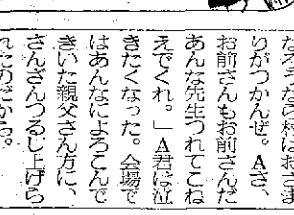 なろうなら村はおさま
りがつかんぜ。Aさ、
お前さんもお前さんだ
あんな先生つれてこね
えでくれ。」A君は泣
きたくなった。会場で
はあんなによろこんで
きいた親父さん方に、
さんざんつるし上げら
れたのだから。